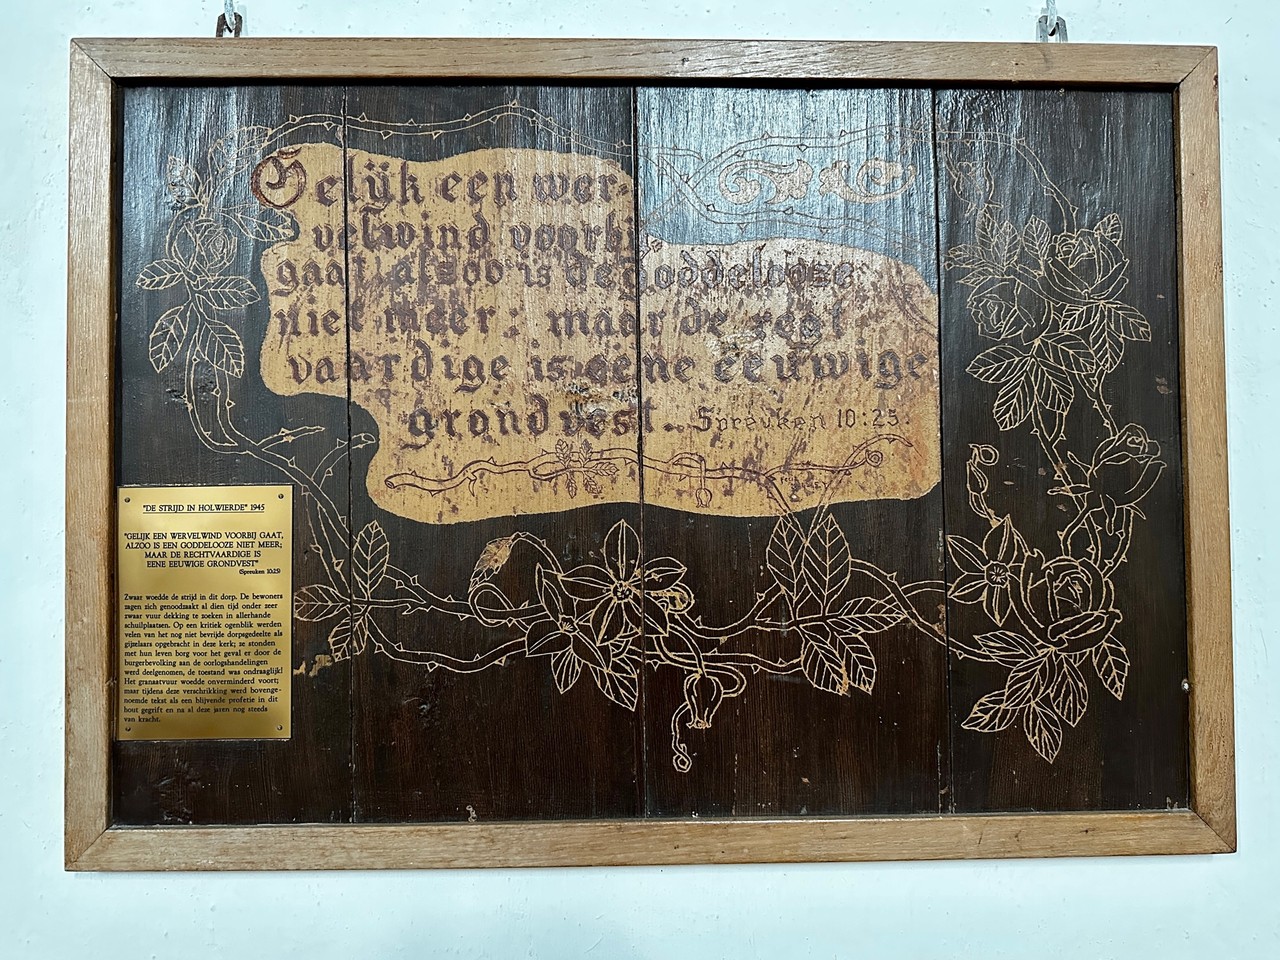 Gelijk een wer-
velwind voorbij
gaat, alzoo is de goddelooze
niet meer: maar de regt
vaardige is eene eeuwige
grondvest. Spreuken 10:25.
"DE STRIJD IN HOLWIERDE" 1945
"GELIJK EEN WERVELWIND VOORBIJ GAAT,
ALZOO IS EEN GODDELOOZE NIET MEER;
MAAR DE RECHTVAARDIGE IS
EENE EEUWIGE GRONDVEST"
(Spreuken 10:25)
Zwaar woedde de strijd in dit dorp. De bewoners
zagen zich genoodzaakt al dien tijd onder zeer
zwaar vuur dekking te zoeken in allerhande
schuilplaatsen. Op een kritiek ogenblik werden
velen van het nog niet bevrijde dorpsgedeelte als
gijzelaars opgebracht in deze kerk; ze stonden
met hun leven borg voor het geval er door de
burgerbevolking aan de oorlogshandelingen
werd deelgenomen, de toestand was ondraaglijk!
Het granaatvuur woedde onverminderd voort;
maar tijdens deze verschrikking werd bovenge-
noemde tekst als een blijvende profetie in dit
hout gegrift en na al deze jaren nog steeds
van kracht.